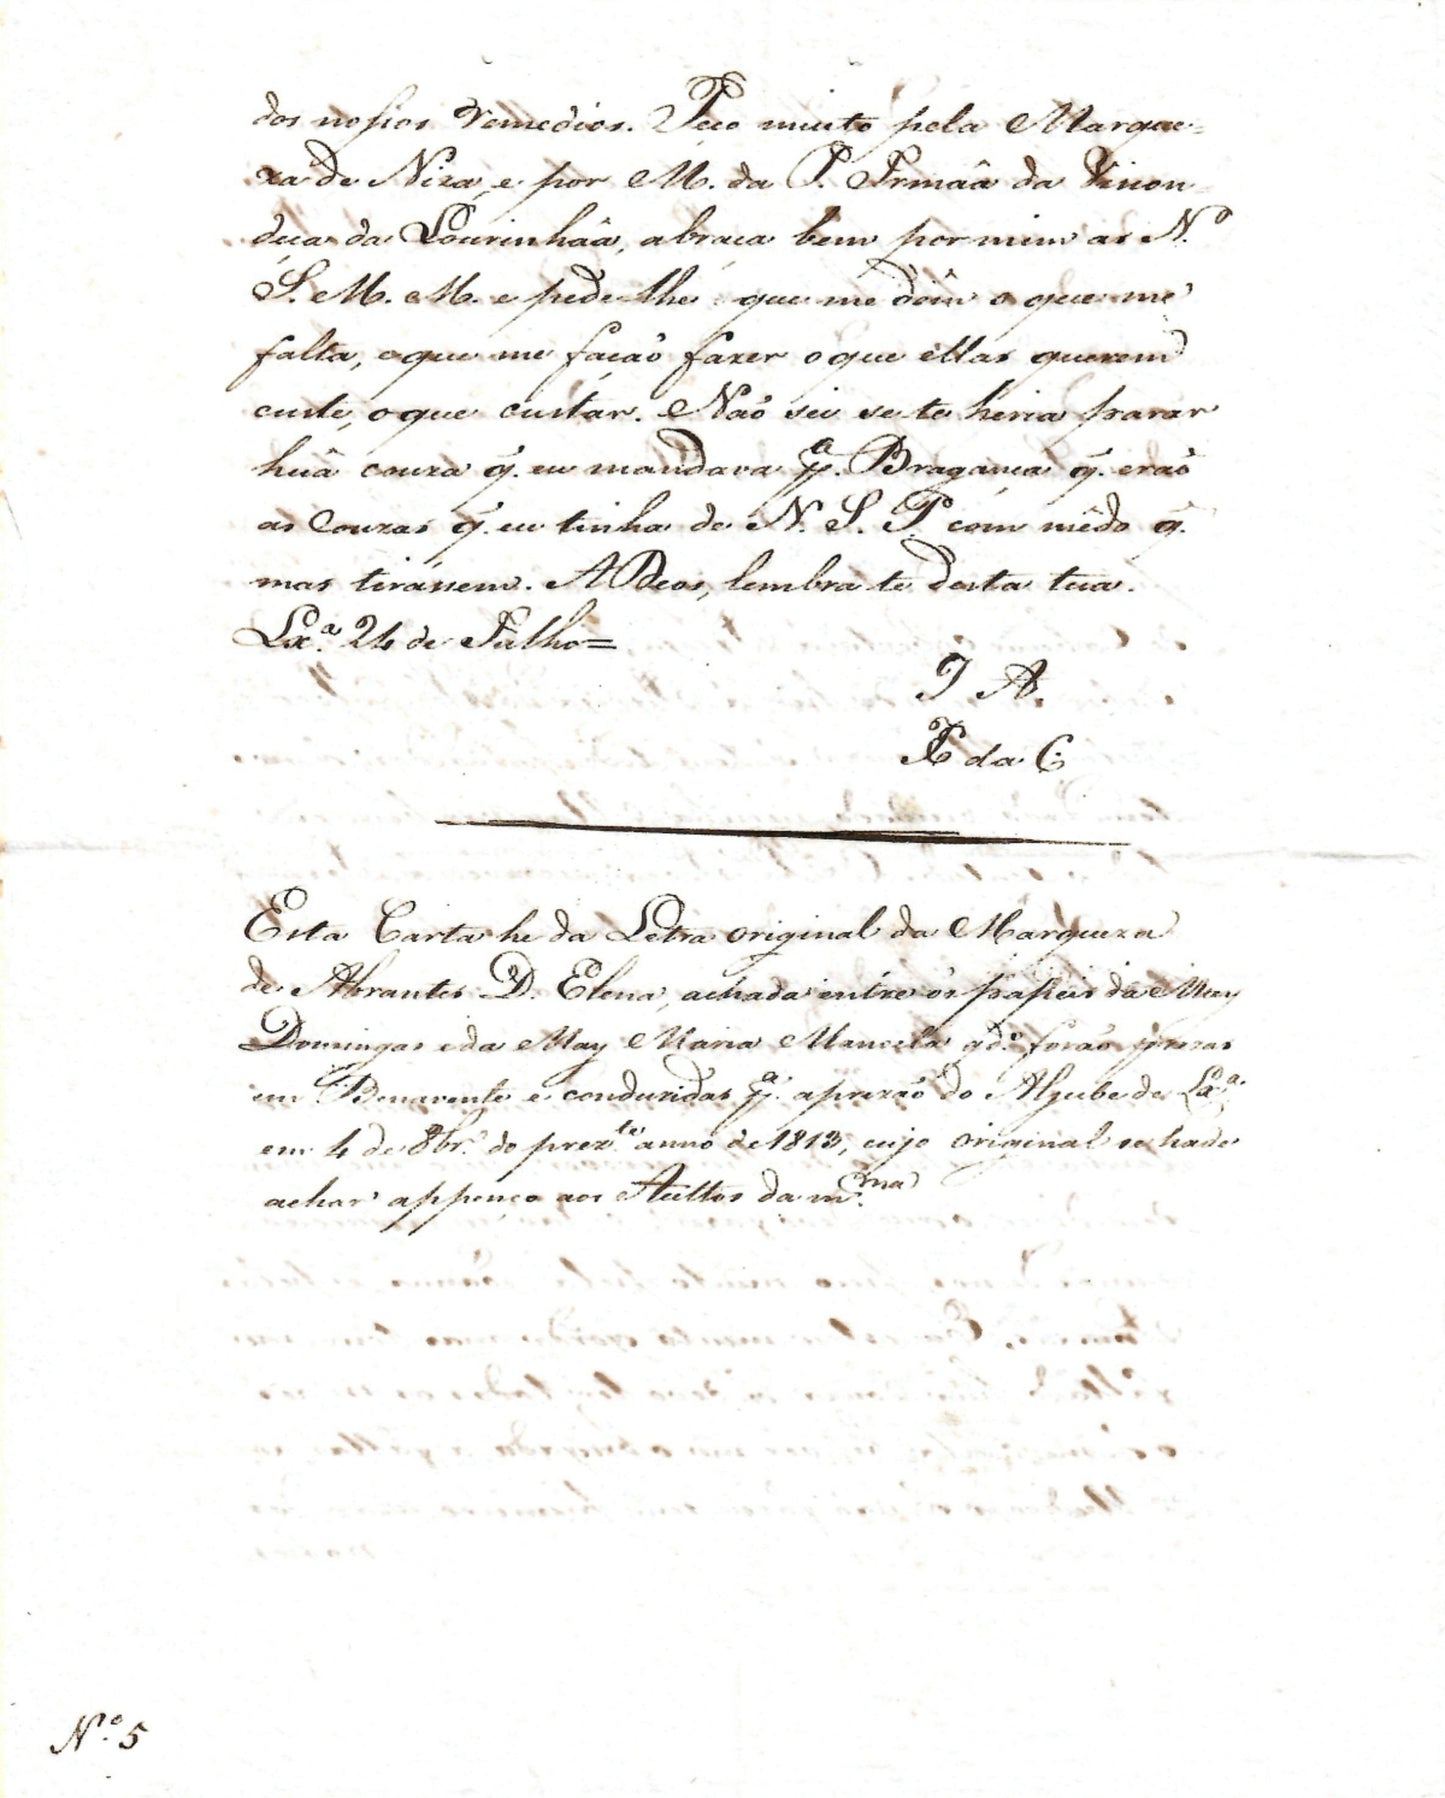 dos nossos remedios. Peço muito pela Marque=
za de Niza, e por M. da P. Irmãa da Viscon=
deça da Lourinhãa, abraça bem por mim as N.
S. M. M. e pede lhe que me dêm o que me
falta, e que me façaõ fazer o que ellas querem
custe, o que custar. Naõ sei se te hiria parar
huã couza q̃. eu mandava p.ª Bragança q̃. eraõ
as Couzas q̃. eu tinha de N. S. P.e com mêdo q̃.
mas tirássem. A Deos, lembra te desta tua.
Lx.ª 24 de Julho=
I A.
X da C
Esta Carta he da Letra original da Marqueza
de Abrantes D. Elena, achada entre os papeis da May
Domingas e da May Maria Manoela qd.º foraõ prezas
em Benavente e conduzidas p.ª a prizaõ do Aljube de Lx.ª
em 4 de 8br.º do prez.te anno de 1813, cujo original se hade
achar appenço aos Auttos da m.ma
N.º 5